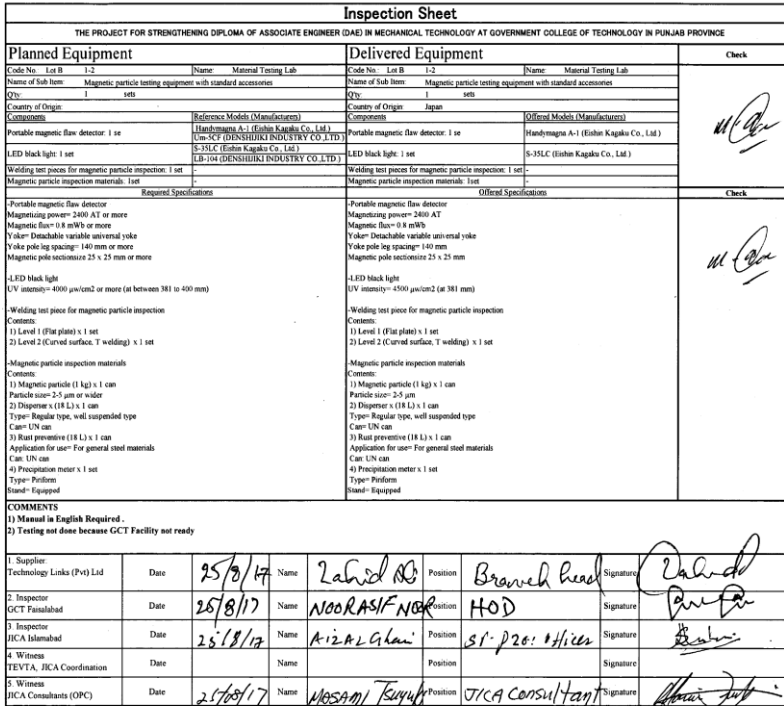 Inspection Sheet
THE PROJECT FOR STRENGTHENING DIPLOMA OF ASSOCIATE ENGINEER (DAE) IN MECHANICAL TECHNOLOGY AT GOVERNMENT COLLEGE OF TECHNOLOGY IN PUNJAB PROVINCE
Planned Equipment
Code No. Lot B 1-2 Name: Material Testing Lab
Name of Sub Item: Magnetic particle testing equipment with standard accessories
Q'ty: 1 sets
Country of Origin:
Components Reference Models (Manufacturers)
Portable magnetic flaw detector: 1 se Handymagna A-1 (Eishin Kagaku Co., Ltd.)
Um-5CF (DENSHIJIKI INDUSTRY CO.,LTD.)
LED black light: 1 set S-35LC (Eishin Kagaku Co., Ltd.)
LB-104 (DENSHIJIKI INDUSTRY CO.,LTD.)
Welding test pieces for magnetic particle inspection: 1 set -
Magnetic particle inspection materials: 1set -
Required Specifications
-Portable magnetic flaw detector
Magnetizing power= 2400 AT or more
Magnetic flux= 0.8 mWb or more
Yoke= Detachable variable universal yoke
Yoke pole leg spacing= 140 mm or more
Magnetic pole sectionsize 25 x 25 mm or more
-LED black light
UV intensity= 4000 μw/cm2 or more (at between 381 to 400 mm)
-Welding test piece for magnetic particle inspection
Contents:
1) Level 1 (Flat plate) x 1 set
2) Level 2 (Curved surface, T welding) x 1 set
-Magnetic particle inspection materials
Contents:
1) Magnetic particle (1 kg) x 1 can
Particle size= 2-5 μm or wider
2) Disperser x (18 L) x 1 can
Type= Regular type, well suspended type
Can= UN can
3) Rust preventive (18 L) x 1 can
Application for use= For general steel materials
Can: UN can
4) Precipitation meter x 1 set
Type= Piriform
Stand= Equipped
Delivered Equipment
Code No.: Lot B 1-2 Name: Material Testing Lab
Name of Sub Item: Magnetic particle testing equipment with standard accessories
Q'ty: 1 sets
Country of Origin: Japan
Components Offered Models (Manufacturers)
Portable magnetic flaw detector: 1 se Handymagna A-1 (Eishin Kagaku Co., Ltd.)
LED black light: 1 set S-35LC (Eishin Kagaku Co., Ltd.)
Welding test pieces for magnetic particle inspection: 1 set -
Magnetic particle inspection materials: 1set -
Offered Specifications
-Portable magnetic flaw detector
Magnetizing power= 2400 AT
Magnetic flux= 0.8 mWb
Yoke= Detachable variable universal yoke
Yoke pole leg spacing= 140 mm
Magnetic pole sectionsize 25 x 25 mm
-LED black light
UV intensity= 4500 μw/cm2 (at 381 mm)
-Welding test piece for magnetic particle inspection
Contents:
1) Level 1 (Flat plate) x 1 set
2) Level 2 (Curved surface, T welding) x 1 set
-Magnetic particle inspection materials
Contents:
1) Magnetic particle (1 kg) x 1 can
Particle size= 2-5 μm
2) Disperser x (18 L) x 1 can
Type= Regular type, well suspended type
Can= UN can
3) Rust preventive (18 L) x 1 can
Application for use= For general steel materials
Can: UN can
4) Precipitation meter x 1 set
Type= Piriform
Stand= Equipped
Check
Check
COMMENTS
1) Manual in English Required .
2) Testing not done because GCT Facility not ready
1. Supplier:
Technology Links (Pvt) Ltd Date 25/8/17 Name Zahid Ali Position Branch head Signature
2. Inspector
GCT Faisalabad Date 25/8/17 Name NOOR ASIF NOOR Position HOD Signature
3. Inspector
JICA Islamabad Date 25/8/17 Name Aizal Ghani Position Sr. Officer Signature
4. Witness
TEVTA, JICA Coordination Date Name Position Signature
5. Witness
JICA Consultants (OPC) Date 25/08/17 Name MASAMI Position JICA Consultant Signature